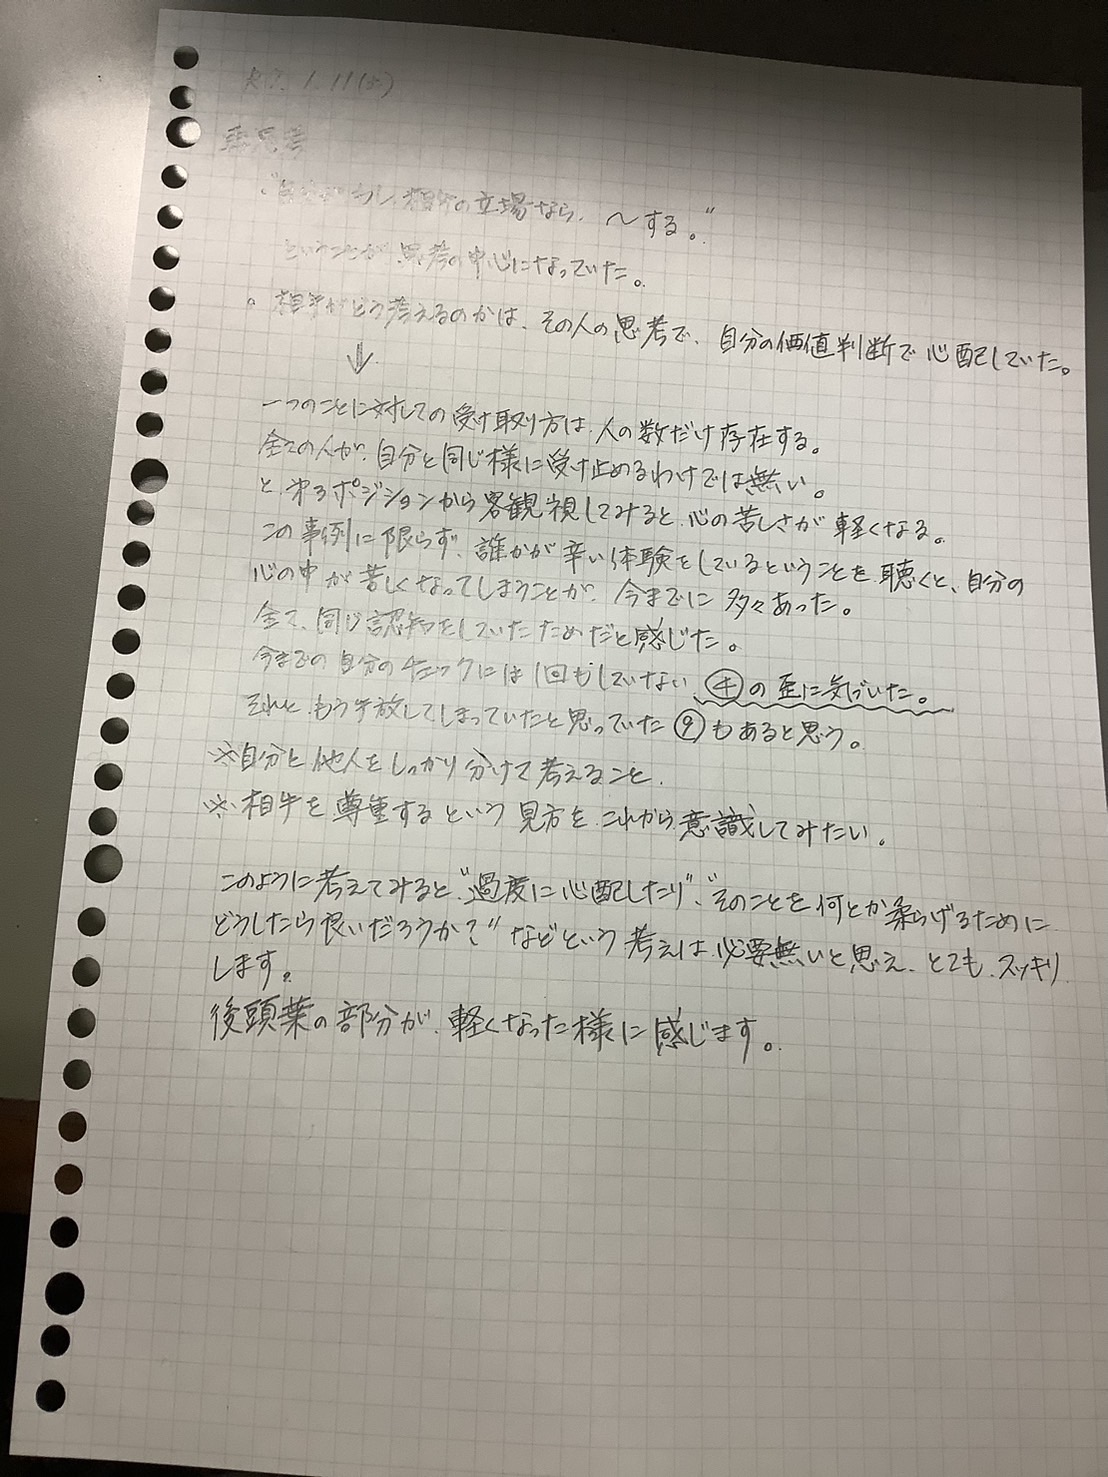 R7. 1. 11(土)
再思考
“自分がもし、相手の立場なら、～する。”
ということが、思考の中心になっていた。
。相手がどう考えるのかは、その人の思考で、自分の価値判断で心配していた。
⇓
一つのことに対しての受け取り方は、人の数だけ存在する。
全ての人が、自分と同じ様に受け止めるわけでは無い。
と、第3ポジションから客観視してみると、心の苦しさが軽くなる。
この事例に限らず、誰かが辛い体験をしているということを聴くと、自分の
心の中が苦しくなってしまうことが、今までに多々あった。
全て、同じ認知をしていたためだと感じた。
今までの自分のチェックには1回もしていない、④の歪に気づいた。
それと、もう手放してしまっていたと思っていた⑨もあると思う。
※自分と他人をしっかり分けて考えること。
※相手を尊重するという見方を、これから意識してみたい。
このように考えてみると“過度に心配したり”、“そのことを何とか柔らげるために
どうしたら良いだろうか?”などという考えは、必要無いと思え、とても、スッキリ
します。
後頭葉の部分が、軽くなった様に感じます。